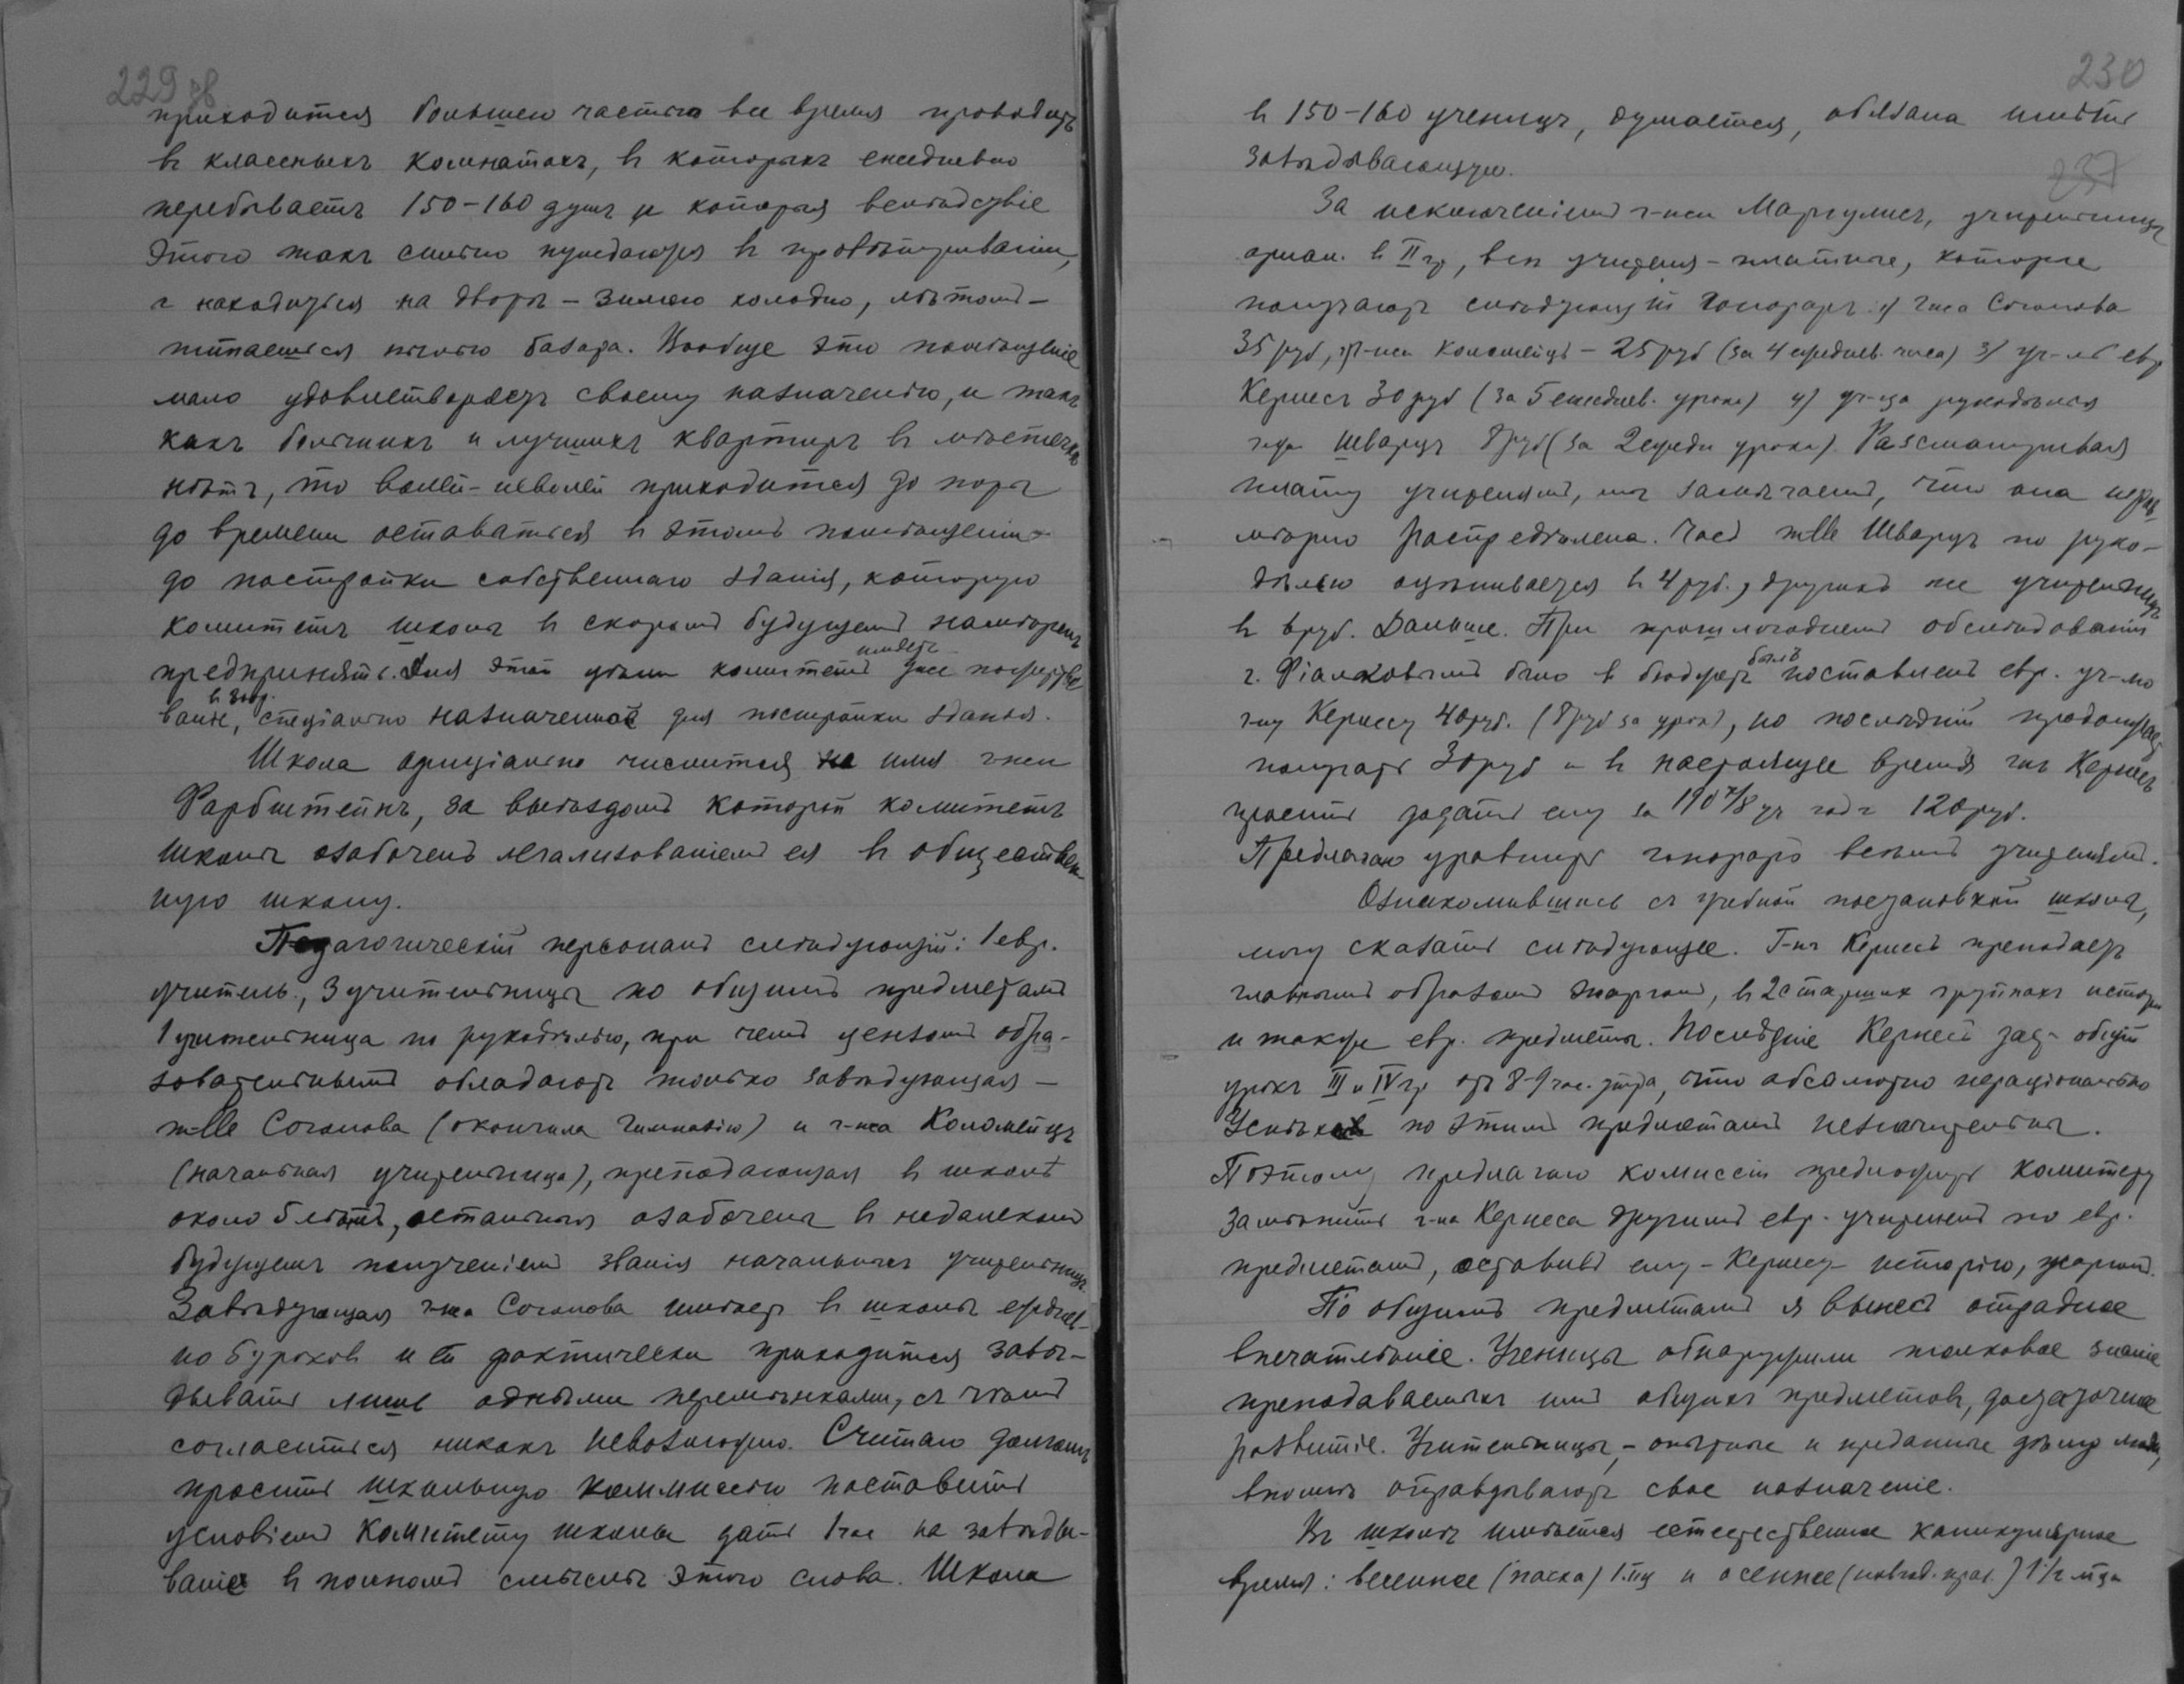 229 об
приходится большею частью все время проводить
въ классныхъ комнатахъ, въ которыхъ ежедневно
перебываетъ 150-160 душъ и которыя вслѣдствіе
этого такъ сильно нуждаются въ провѣтриваніи,
а находиться на дворѣ - зимою холодно, лѣтомъ -
питаешься пылью базара. Вообще это помѣщеніе
мало удовлетворяетъ своему назначенію, и такъ
какъ большихъ и лучшихъ квартиръ въ мѣстечкѣ
нѣтъ, то волей-неволей приходится до поры
до времени оставаться въ этомъ помѣщеніи -
до постройки собственнаго зданія, которую
комитетъ школы въ скоромъ будущемъ намѣренъ
предпринять. Для этой цѣли комитетъ имѣетъ уже
спеціально назначенное для постройки зданія.
Школа оффиціально числится на имя г-жи
Фарбштейнъ, за выѣздомъ которой комитетъ
школы озабоченъ легализованіемъ ея въ обществен-
ную школу.
Педагогическій персоналъ слѣдующій: 1 евр.
учитель, 3 учительницы по общимъ предметамъ
1 учительница по рукодѣлью, при чемъ цензомъ обра-
зовательнымъ обладаютъ только завѣдующая -
m-lle Соголова (окончила гимназію) и г-жа Коломейцъ
(начальная учительница), преподающая въ школѣ
около 5 лѣтъ, остальныя озабочены въ недалекомъ
будущемъ полученіемъ званія начальныхъ учительницъ.
Завѣдующая г-жа Соголова имѣетъ въ школѣ ежднев-
но 5 уроковъ и ей фактически приходится завѣ-
дывать лишь одними перемѣнками, съ чѣмъ
согласиться никакъ невозможно. Считаю долгомъ
просить школьную коммиссію поставить
условіемъ комитету школы дать 1 час на завѣды-
ваніе въ полномъ смыслѣ этого слова. Школа
230
въ 150-160 ученицъ, думается, обязана имѣть
завѣдывающую.
237
За исключеніемъ г-жи Маргулисъ, учительницы
въ II гр, всѣ учителя - платные, которые
получаютъ слѣдующій гонораръ: 1) г-жа Соголова
35 руб, г-жа Коломейцъ - 25 руб (за 4 ежднев. часа) 3) уч-ль евр
Кернесъ 30 руб (за 5 ежеднев. уроков) 4) уч-ца рукодѣлія
г-жа Шварцъ 8 руб (за 2 уроки). Разсматривая
плату учителямъ, мы замѣчаемъ, что она нерав-
мѣрно распредѣлена. Часъ m-lle Шварцъ по руко-
дѣлью оцѣнивается въ 4 руб., другихъ же учительницъ
въ 6 руб. Дальше. При прошлогоднемъ обслѣдованіи
г. Фіалковымъ было в бюджетъ поставленъ евр. уч-лю
г-ну Кернесу 40 руб. (8 руб за урокъ), но послѣдній продолжаетъ
получать 30 руб и въ настоящее время г-нъ Кернесъ
проситъ додать ему за 1907/8 уч годъ 120 руб.
Предлагаю уравнить гонораръ всѣмъ учителямъ.
Ознакомившись съ учебной постановкой школы,
могу сказать слѣдующее. Г-нъ Кернесъ преподаетъ
главнымъ образомъ жаргонъ, въ 2 старших группахъ исторію
и также евр. предметы. Послѣдніе Кернесъ
урокъ III и IV гр отъ 8-9 час. утра, что абсолютно нераціонально
Успѣхи по этимъ предметамъ незначительны.
Поэтому предлагаю комиссіи предложить комитету
замѣнить г-на Кернеса другимъ евр. учителемъ по евр.
предметамъ, оставивъ ему - Кернесу - исторію, жаргонъ.
По общимъ предметамъ я вынесъ отрадное
впечатлѣніе. Ученицы обнаружили толковое знаніе
преподаваемыхъ имъ общихъ предметовъ, достаточное
развитіе. Учительницы, - опытные и преданные дѣлу люди,
вполнѣ оправдываютъ свое назначеніе.
Въ школѣ имѣется естественное каникулярное
время: весеннее (пасха) 1 мц и осеннее (новогод. праз.) 1 1/2 мца